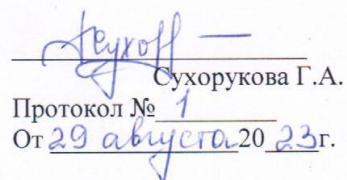 Сухорукова Г.А.
Протокол № 1
От 29 августа 2023г.